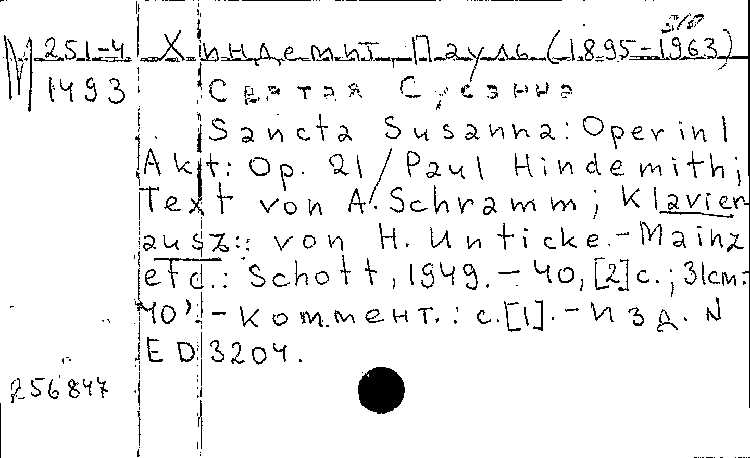 310
М 251-4 Хиндемит, Пауль (1895-1963)
1493 Святая Сусанна
Sancta Susanna: Oper in 1
Akt: Op. 21 / Paul Hindemith;
Text von A. Schramm; Klavier-
ausz.: von H. Unticke. - Mainz
etc.: Schott, 1949. - 40, [2] с.; 31cм.
40'. - Коммент.: с. [1]. - Изд. N
ED 3204.
256847